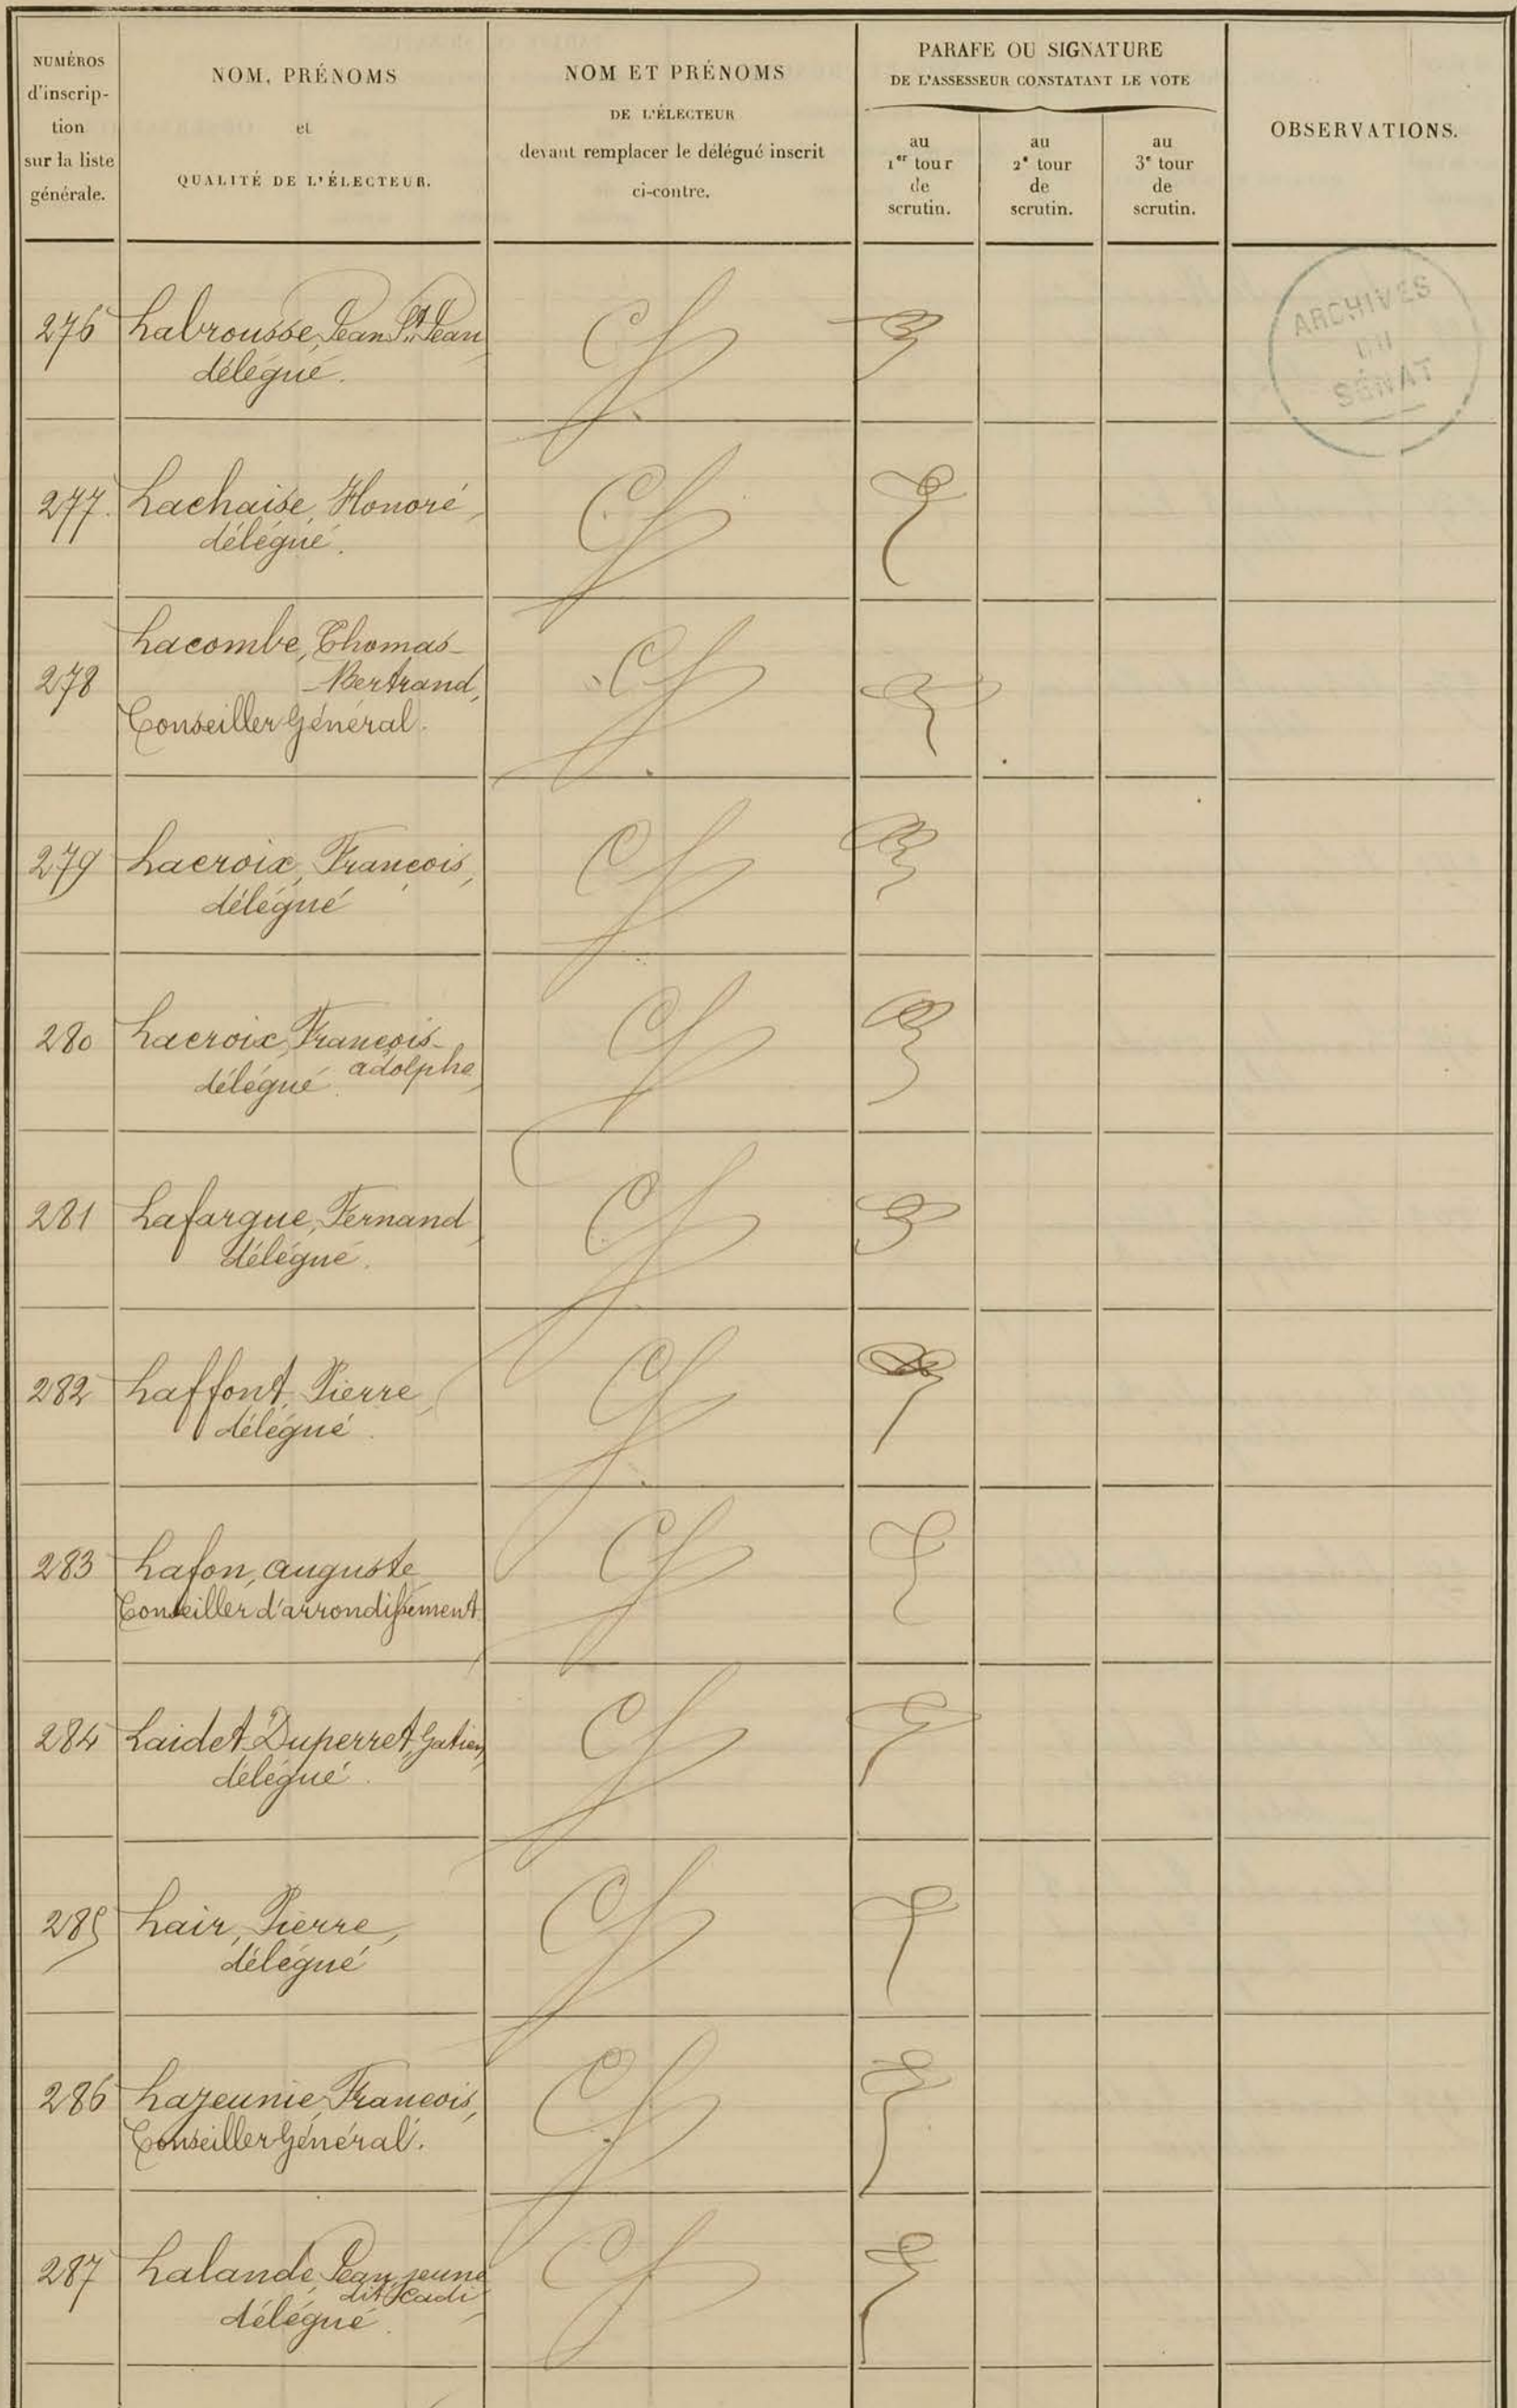 NUMÉROS
d'inscrip-
tion
sur la liste
générale.
NOM, PRÉNOMS
et
QUALITÉ DE L'ÉLECTEUR.
NOM ET PRÉNOMS
DE L'ÉLECTEUR
devant remplacer le délégué inscrit
ci-contre.
PARAFE OU SIGNATURE
DE L'ASSESSEUR CONSTATANT LE VOTE
au
1er tour
de
scrutin.
au
2e tour
de
scrutin.
au
3e tour
de
scrutin.
OBSERVATIONS.
ARCHIVES
DU
SÉNAT
276 Labrousse, Jean Jean
délégué.
277. Lachaise, Honoré,
délégué.
Lacombe, Thomas-
278 Bertrand,
Conseiller Général.
279 Lacroix, François,
délégué
280 Lacroix, François-
adolphe,
délégué.
281 Lafargue, Fernand,
délégué.
282 Laffont, Pierre,
délégué.
283 Lafon, auguste
Conseiller d'arrondissement
284 Laidet Duperret, Gatien,
délégué.
285 Lair, Pierre,
délégué
286 Lajeunie, François,
Conseiller Général.
287 Lalande, Jean jeune
dit Cadi
délégué.